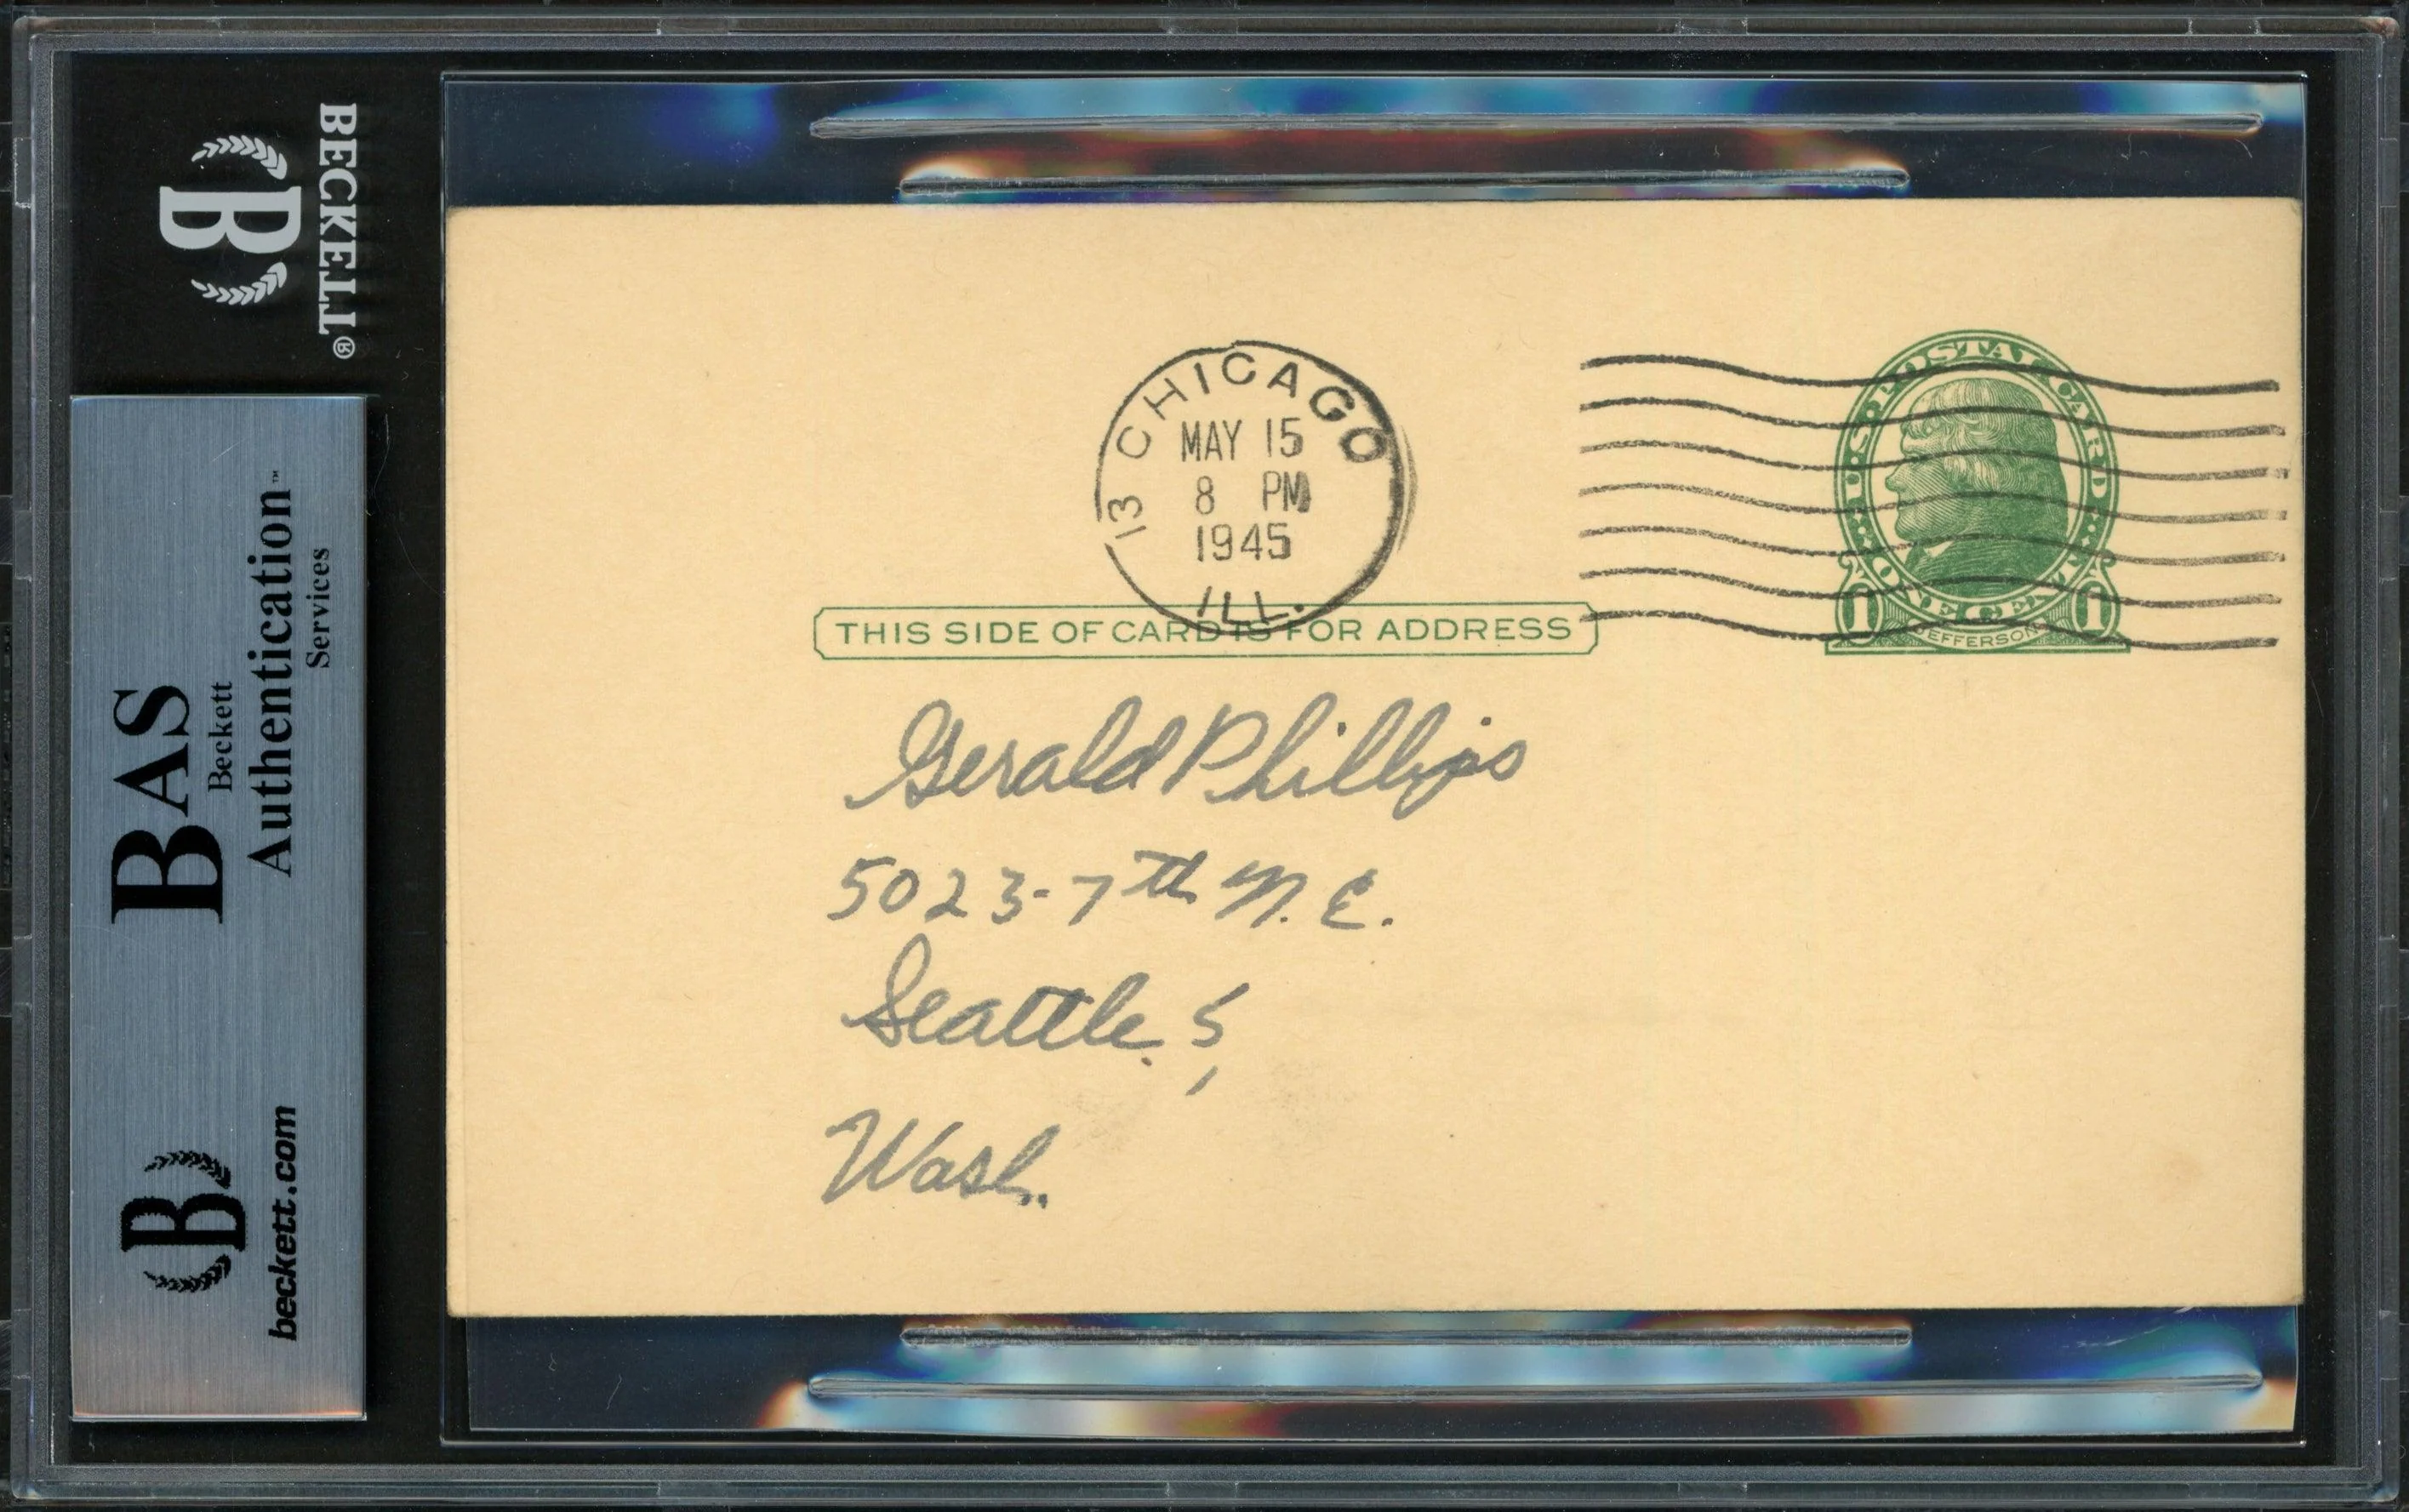 BECKETT®
B
BAS
Beckett
Authentication™
Services
B
beckett.com
13 CHICAGO
MAY 15
8 PM
1945
ILL.
U.S. POSTAL CARD
1 ONE CENT 1
JEFFERSON
THIS SIDE OF CARD IS FOR ADDRESS
Gerald Phillips
5023-7th N.E.
Seattle. 5,
Wash.